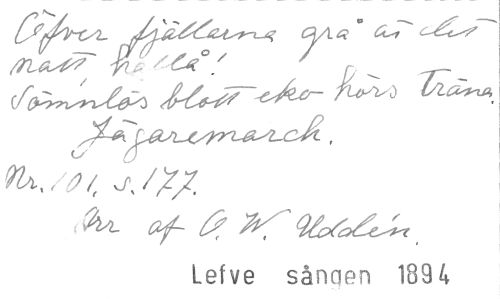 Öfver fjällarna grå är det
natt, hallå!
Sömnlös blott eko hörs träna.
Jägaremarch.
Nr. 101. s. 177.
Arr af O. W. Uddén.
Lefve sången 1894